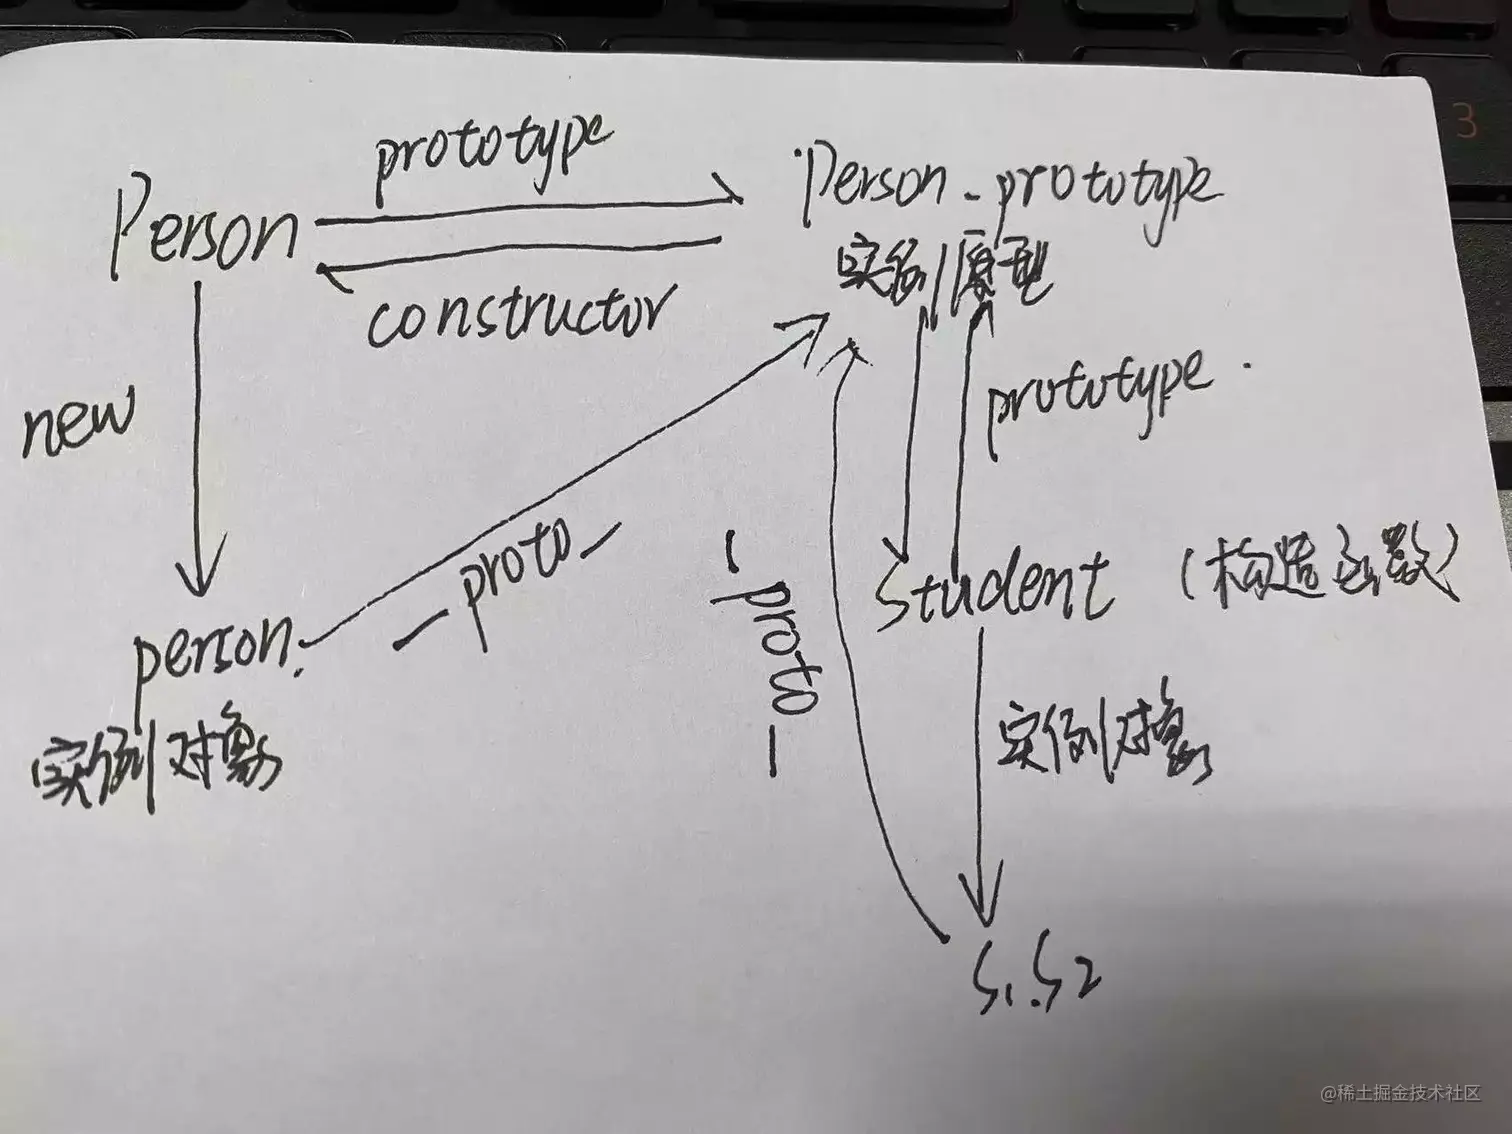 prototype
Person
Person.prototype
实例原型
constructor
new
prototype
_proto_
_proto_
Student (构造函数)
person
实例对象
实例对象
S1.S2
3
@稀土掘金技术社区